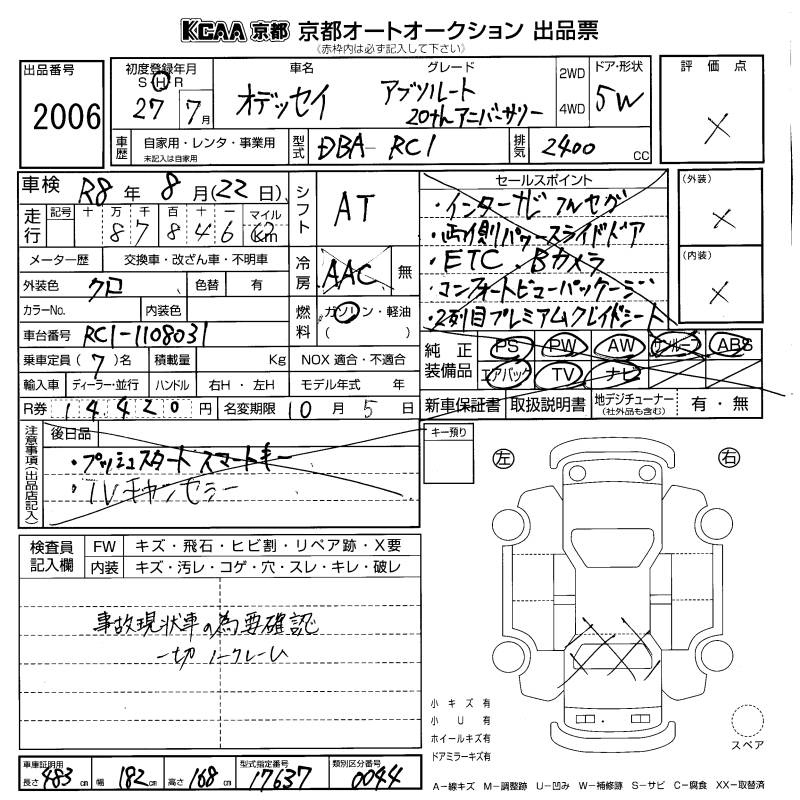 KCAA 京都 京都オートオークション 出品票
(赤枠内は必ず記入して下さい)
出品番号
2006
初度登録年月
S H R
27 7月
車名
オデッセイ
グレード
アブソルート
20th アニバーサリー
2WD
4WD
ドア・形状
5W
評価点
車歴
自家用・レンタ・事業用
未記入は自家用
型式
DBA-RC1
排気
2400 CC
車検 R8年 8月(22日)
シフト AT
走行 記号 十 万 千 百 十 一 マイル
8 7 8 4 6 Km
メーター歴 交換車・改ざん車・不明車
冷房 AAC 無
外装色 クロ 色替 有
カラーNo. 内装色
燃料 ガソリン・軽油
( )
車台番号 RC1-1108031
乗車定員 (7)名 積載量 Kg NOX 適合・不適合
輸入車 ディーラー・並行 ハンドル 右H・左H モデル年式 年
R券 14,420円 名変期限 10月 5日
セールスポイント
・インターナビ フルセグ
・両側パワースライドドア
・ETC・Bカメラ
・コンフォートビューパッケージ
・2列目プレミアムクレイドルシート
(外装)
(内装)
純正装備品
PS PW AW サンルーフ ABS
エアバック TV ナビ
新車保証書 取扱説明書 地デジチューナー 有・無
(社外品も含む)
注意事項(出品店記入)
後日品
・プッシュスタート スマートキー
・TVキャンセラー
キー預り
左 右
検査員記入欄
FW キズ・飛石・ヒビ割・リペア跡・X要
内装 キズ・汚レ・コゲ・穴・スレ・キレ・破レ
事故現状車の為要確認
一切ノークレーム
小キズ有
小U有
ホイールキズ有
ドアミラーキズ有
スペア
車庫証明用
長さ 483 cm 幅 182 cm 高さ 168 cm
型式指定番号
17637
類別区分番号
0044
A－線キズ M－調整跡 U－凹み W－補修跡 S－サビ C－腐食 XX－取替済